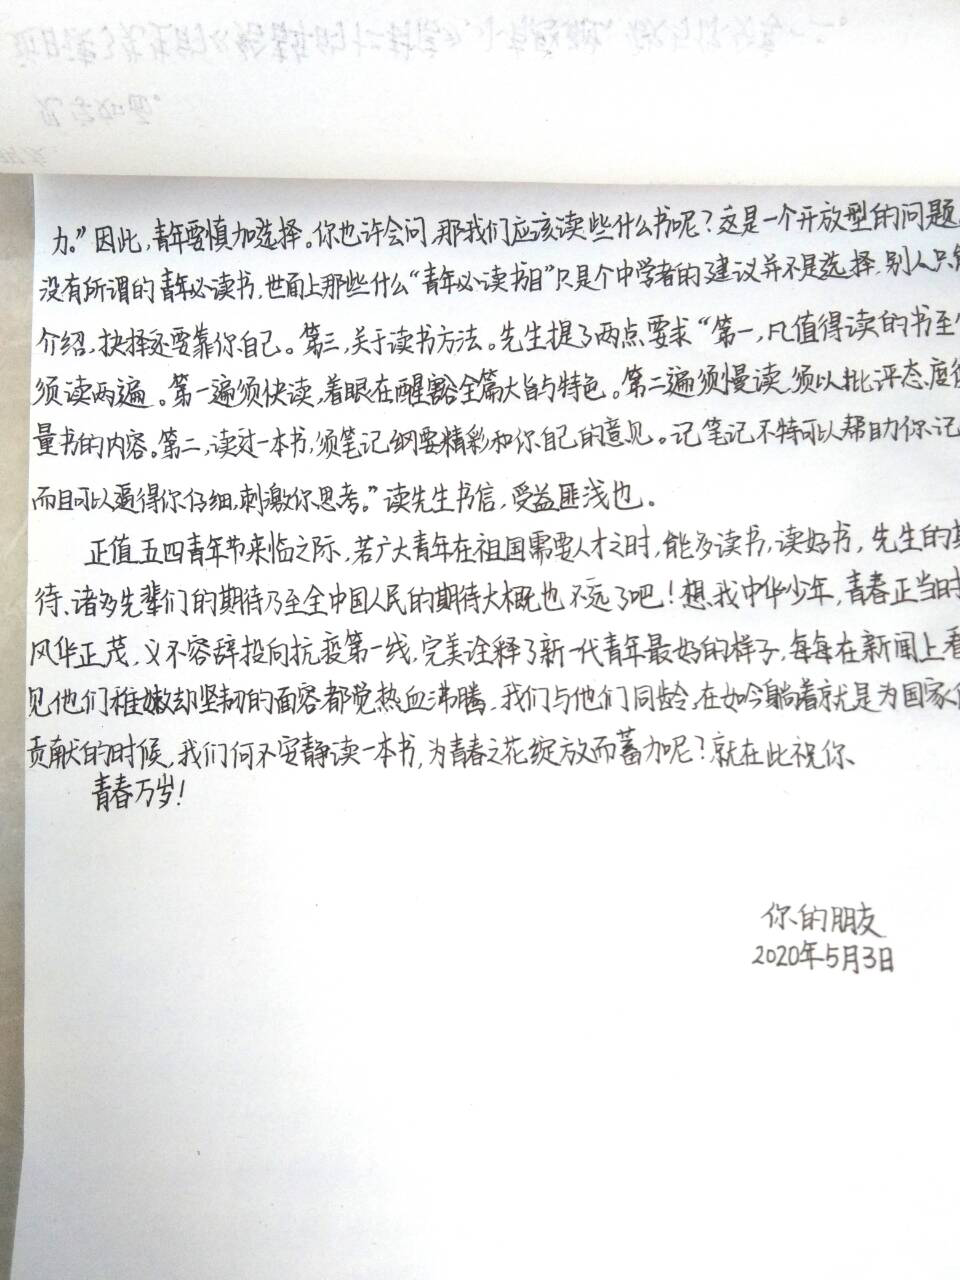 力。”因此，青年要慎加选择。你也许会问，那我们应该读些什么书呢？这是一个开放型的问题，
没有所谓的青年必读书，世面上那些什么“青年必读书目”只是个中学者的建议并不是选择，别人只
介绍，抉择还要靠你自己。第三，关于读书方法。先生提了两点要求“第一，凡值得读的书至
须读两遍。第一遍须快读，着眼在醒豁全篇大旨与特色。第二遍须慢读，须以批评态度
量书的内容。第二，读过一本书，须笔记纲要精彩和你自己的意见。记笔记不特可以帮助你记
而且可以逼得你仔细，刺激你思考。”读先生书信，受益匪浅也。
正值五四青年节来临之际，若广大青年在祖国需要人才之时，能多读书，读好书，先生的
待、诸多先辈们的期待乃至全中国人民的期待大概也不远了吧！想我中华少年，青春正当时
风华正茂，义不容辞投向抗疫第一线，完美诠释了新一代青年最好的样子，每每在新闻上看
见他们稚嫩却坚韧的面容都觉热血沸腾，我们与他们同龄，在如今躺着就是为国家
贡献的时候，我们何不安静读一本书，为青春之花绽放而蓄力呢？就在此祝你
青春万岁！
你的朋友
2020年5月3日